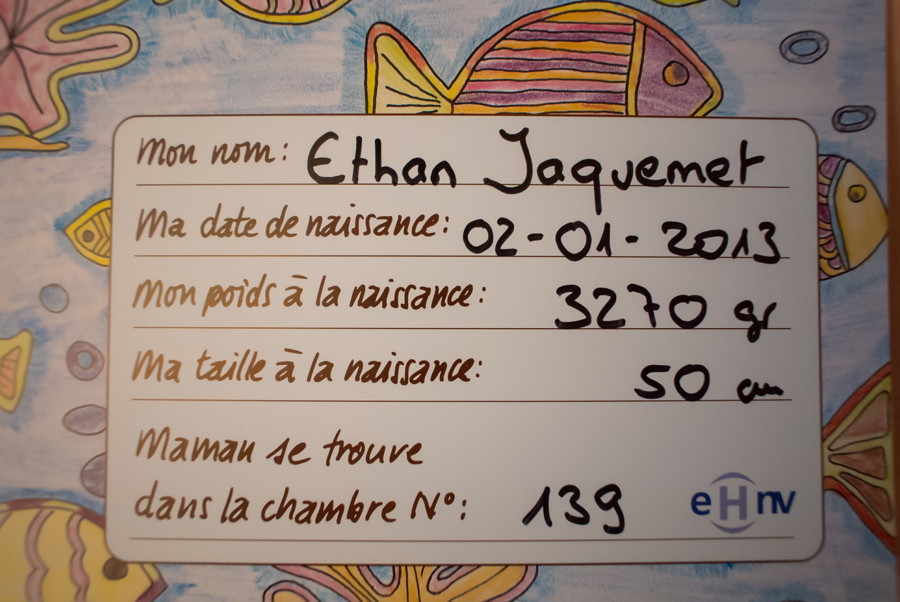 Mon nom: Ethan Jaquemet
Ma date de naissance: 02-01-2013
Mon poids à la naissance: 3270 gr
Ma taille à la naissance: 50 cm
Maman se trouve
dans la chambre N°: 139
eHnv